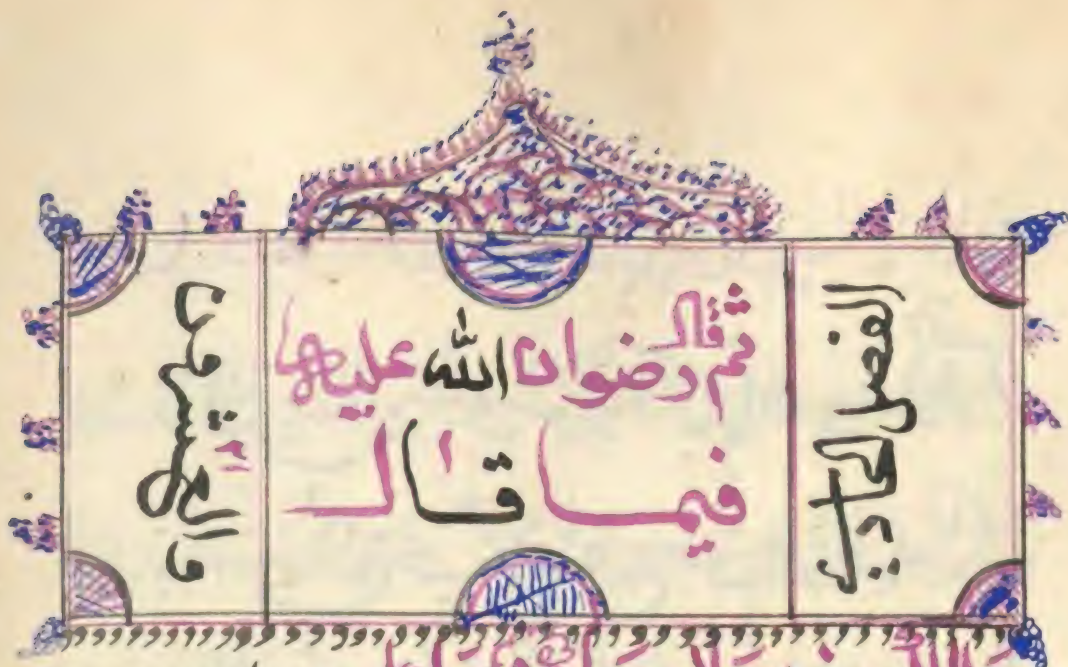 الفصل الحادي
ثم قال رضوان الله عليه
فيما قال
والعشرون